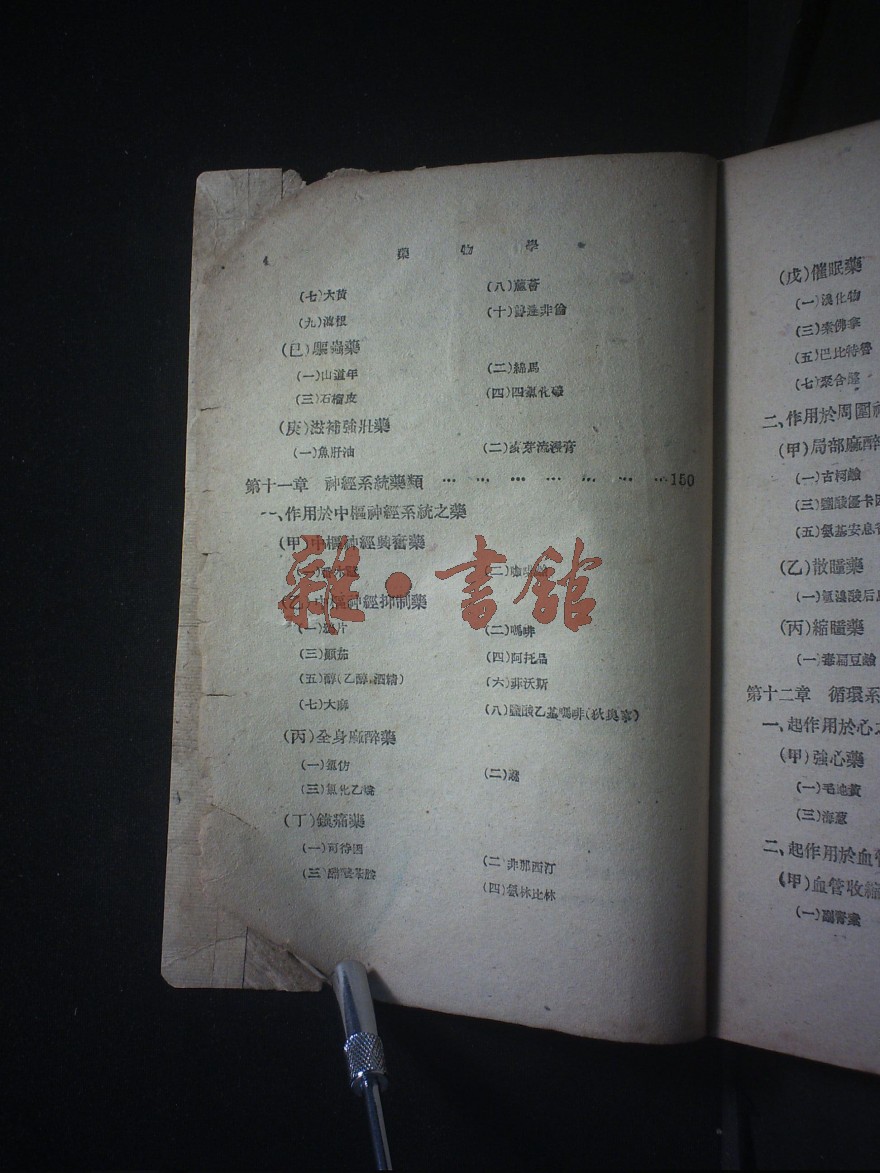 藥物學
(七)大黃 (八)蘆薈
(九)
(巳)驅蟲藥
(一)山道年 (二)綿馬
(三)石榴皮 (四)四氯化碳
(庚)滋補強壯藥
(一)魚肝油 (二)麥芽流浸膏
第十一章 神經系統藥類 … … … … … … …150
一、作用於中樞神經系統之藥
(甲)中樞神經興奮藥
(二)咖啡
(乙)中樞神經抑制藥
(一)鴉片 (二)嗎啡
(三)顛茄 (四)阿托品
(五)醇(乙醇,酒精) (六)菲沃斯
(七)大麻 (八)鹽酸乙基嗎啡(狄奧寧)
(丙)全身麻醉藥
(一)氯仿 (二)醚
(三)氯化乙烷
(丁)鎮痛藥
(一)可待因 (二)非那西汀
(三) (四)氨林比林
雜·書館
(戊)催眠藥
(一)溴化物
(三)索佛拿
(五)巴比特魯
(七)聚合醛
二、作用於周圍神
(甲)局部麻醉
(一)古柯鹼
(三)鹽酸優卡因
(五)氨基安息香
(乙)散瞳藥
(一)氫溴酸后馬
(丙)縮瞳藥
(一)毒扁豆鹼
第十二章 循環系
一、起作用於心之
(甲)強心藥
(一)毛地黃
(三)海葱
二、起作用於血管
(甲)血管收縮
(一)副腎素